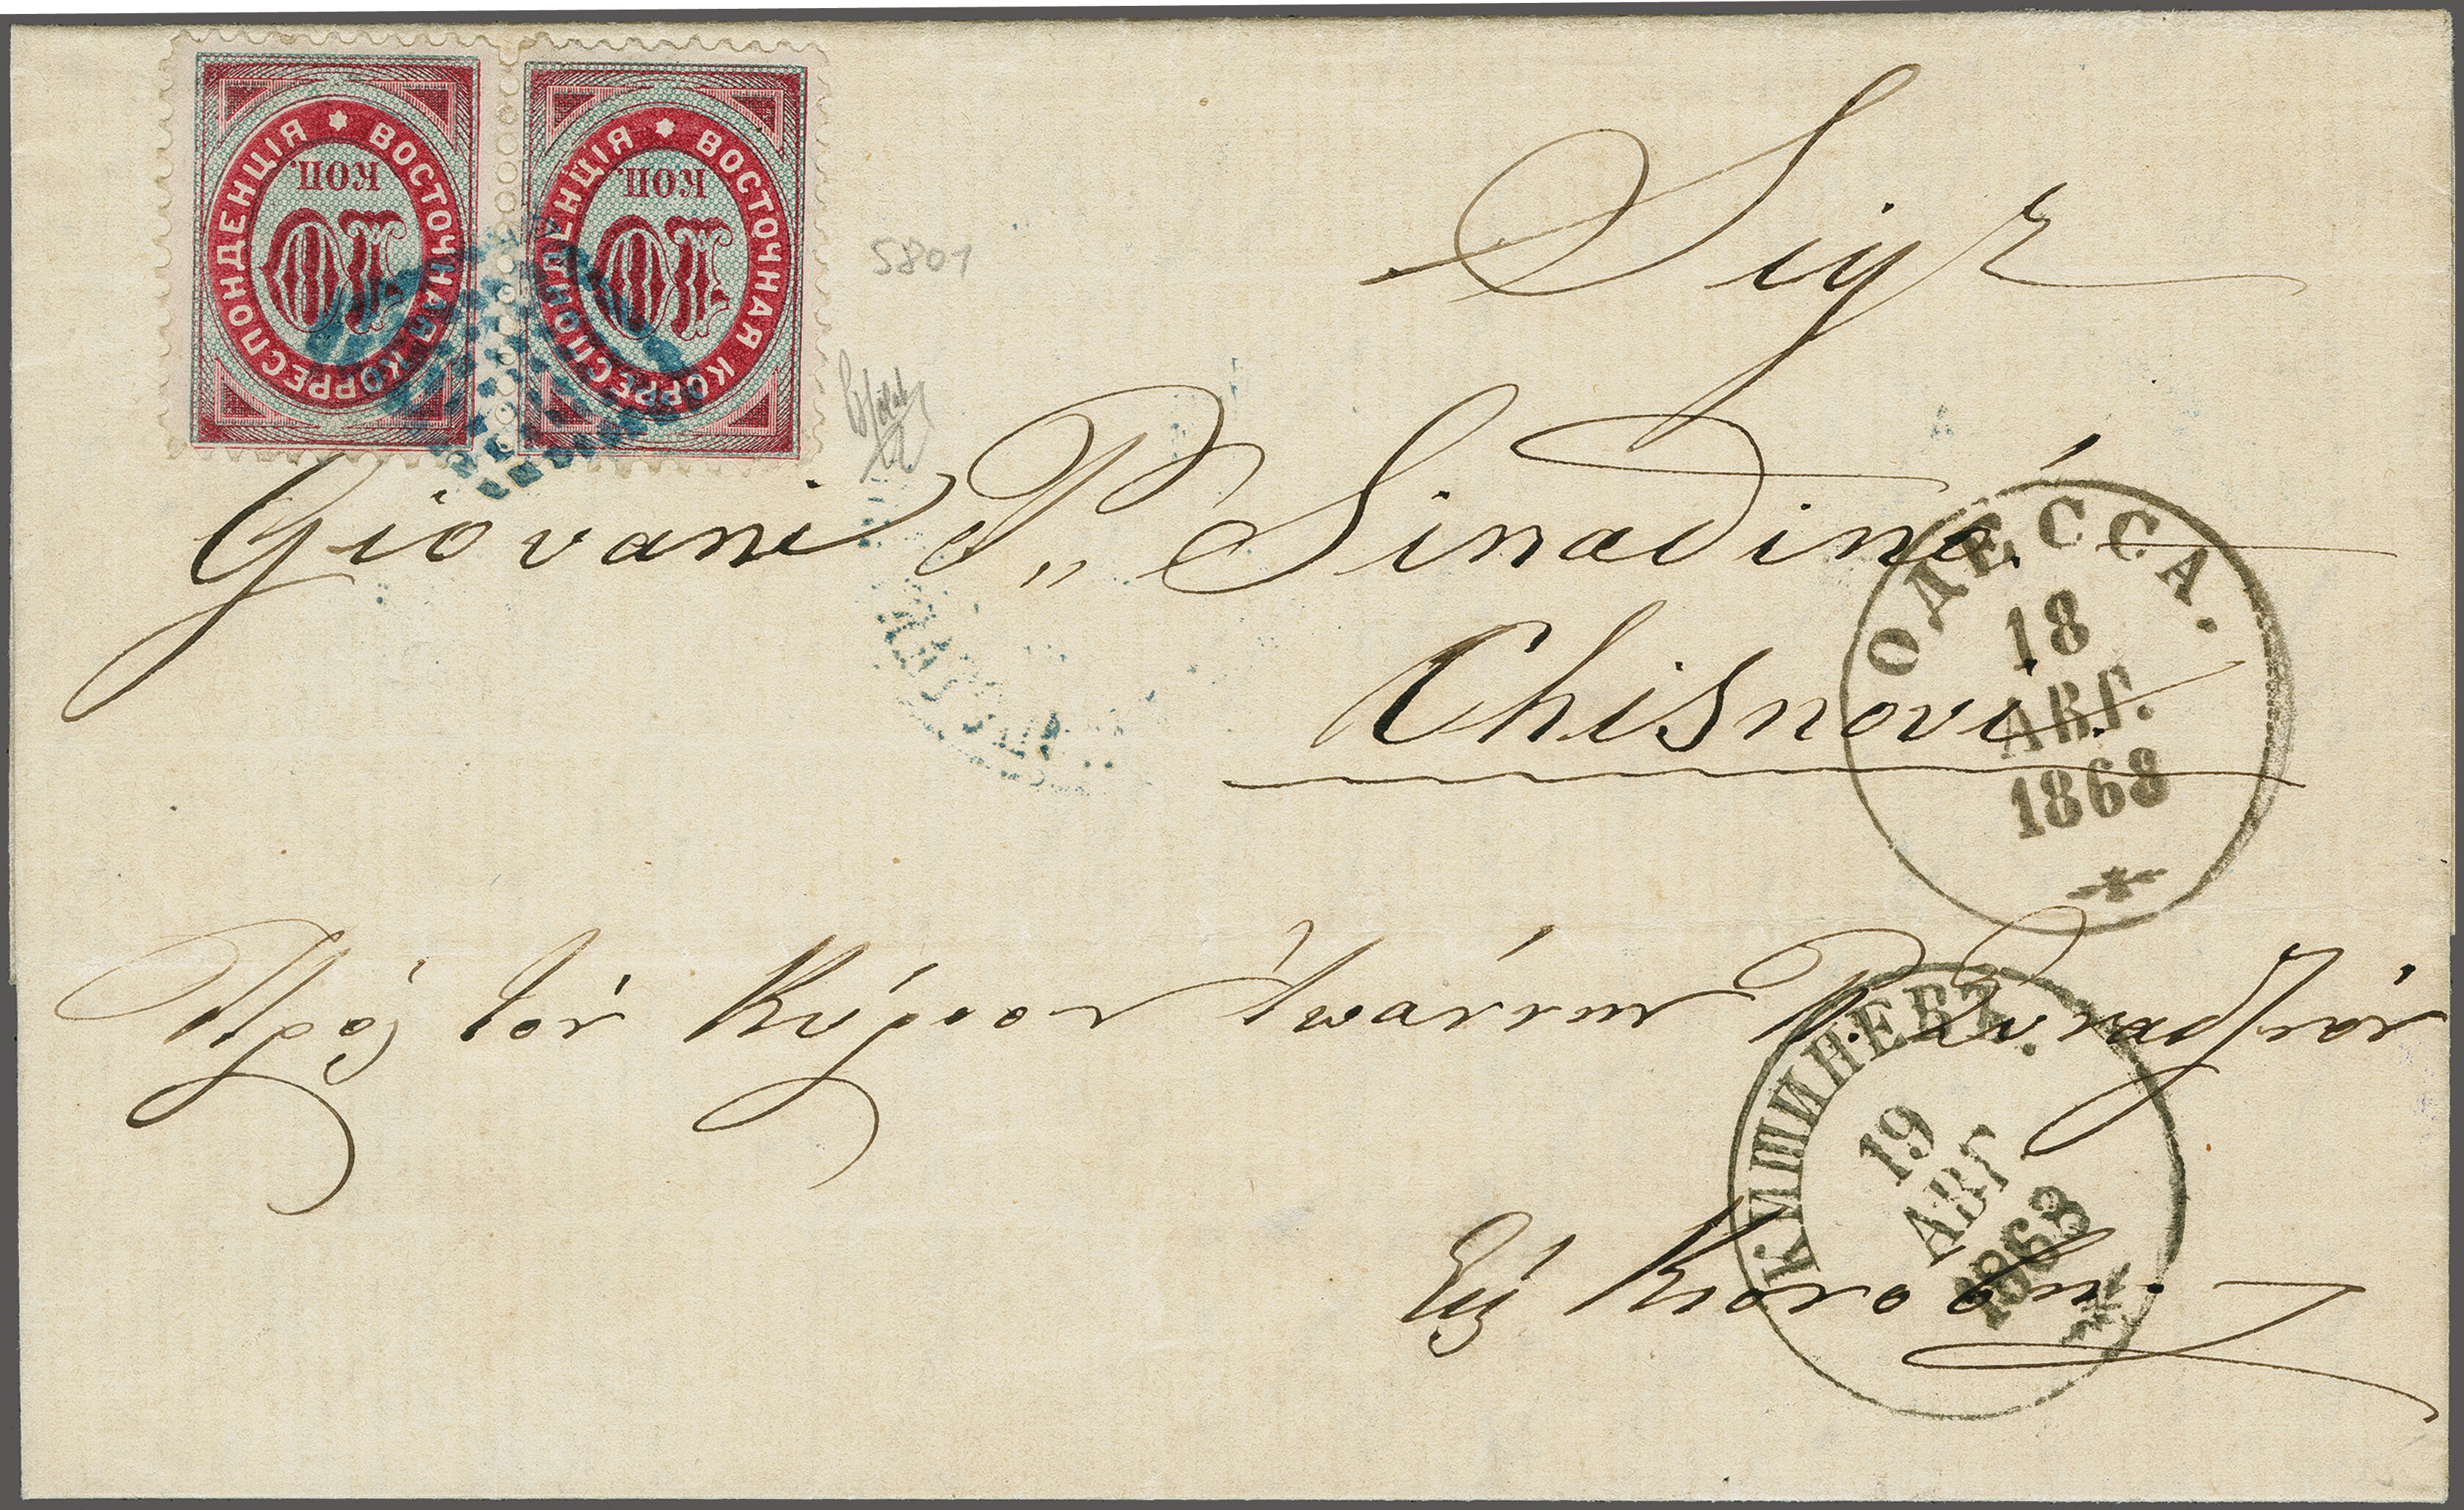 ВОСТОЧНАЯ КОРРЕСПОНДЕНЦІЯ
10
КОП.
ВОСТОЧНАЯ КОРРЕСПОНДЕНЦІЯ
10
КОП.
5801
Sigr
Giovani P. Sinadinó
Chisnovi
ОДЕССА.
18
АВГ.
1868
Πρὸς τὸν Κύριον Ἰωάννην Π. Συναδινὸν
КИШИНЕВЪ.
19
АВГ
1868
Εἰς